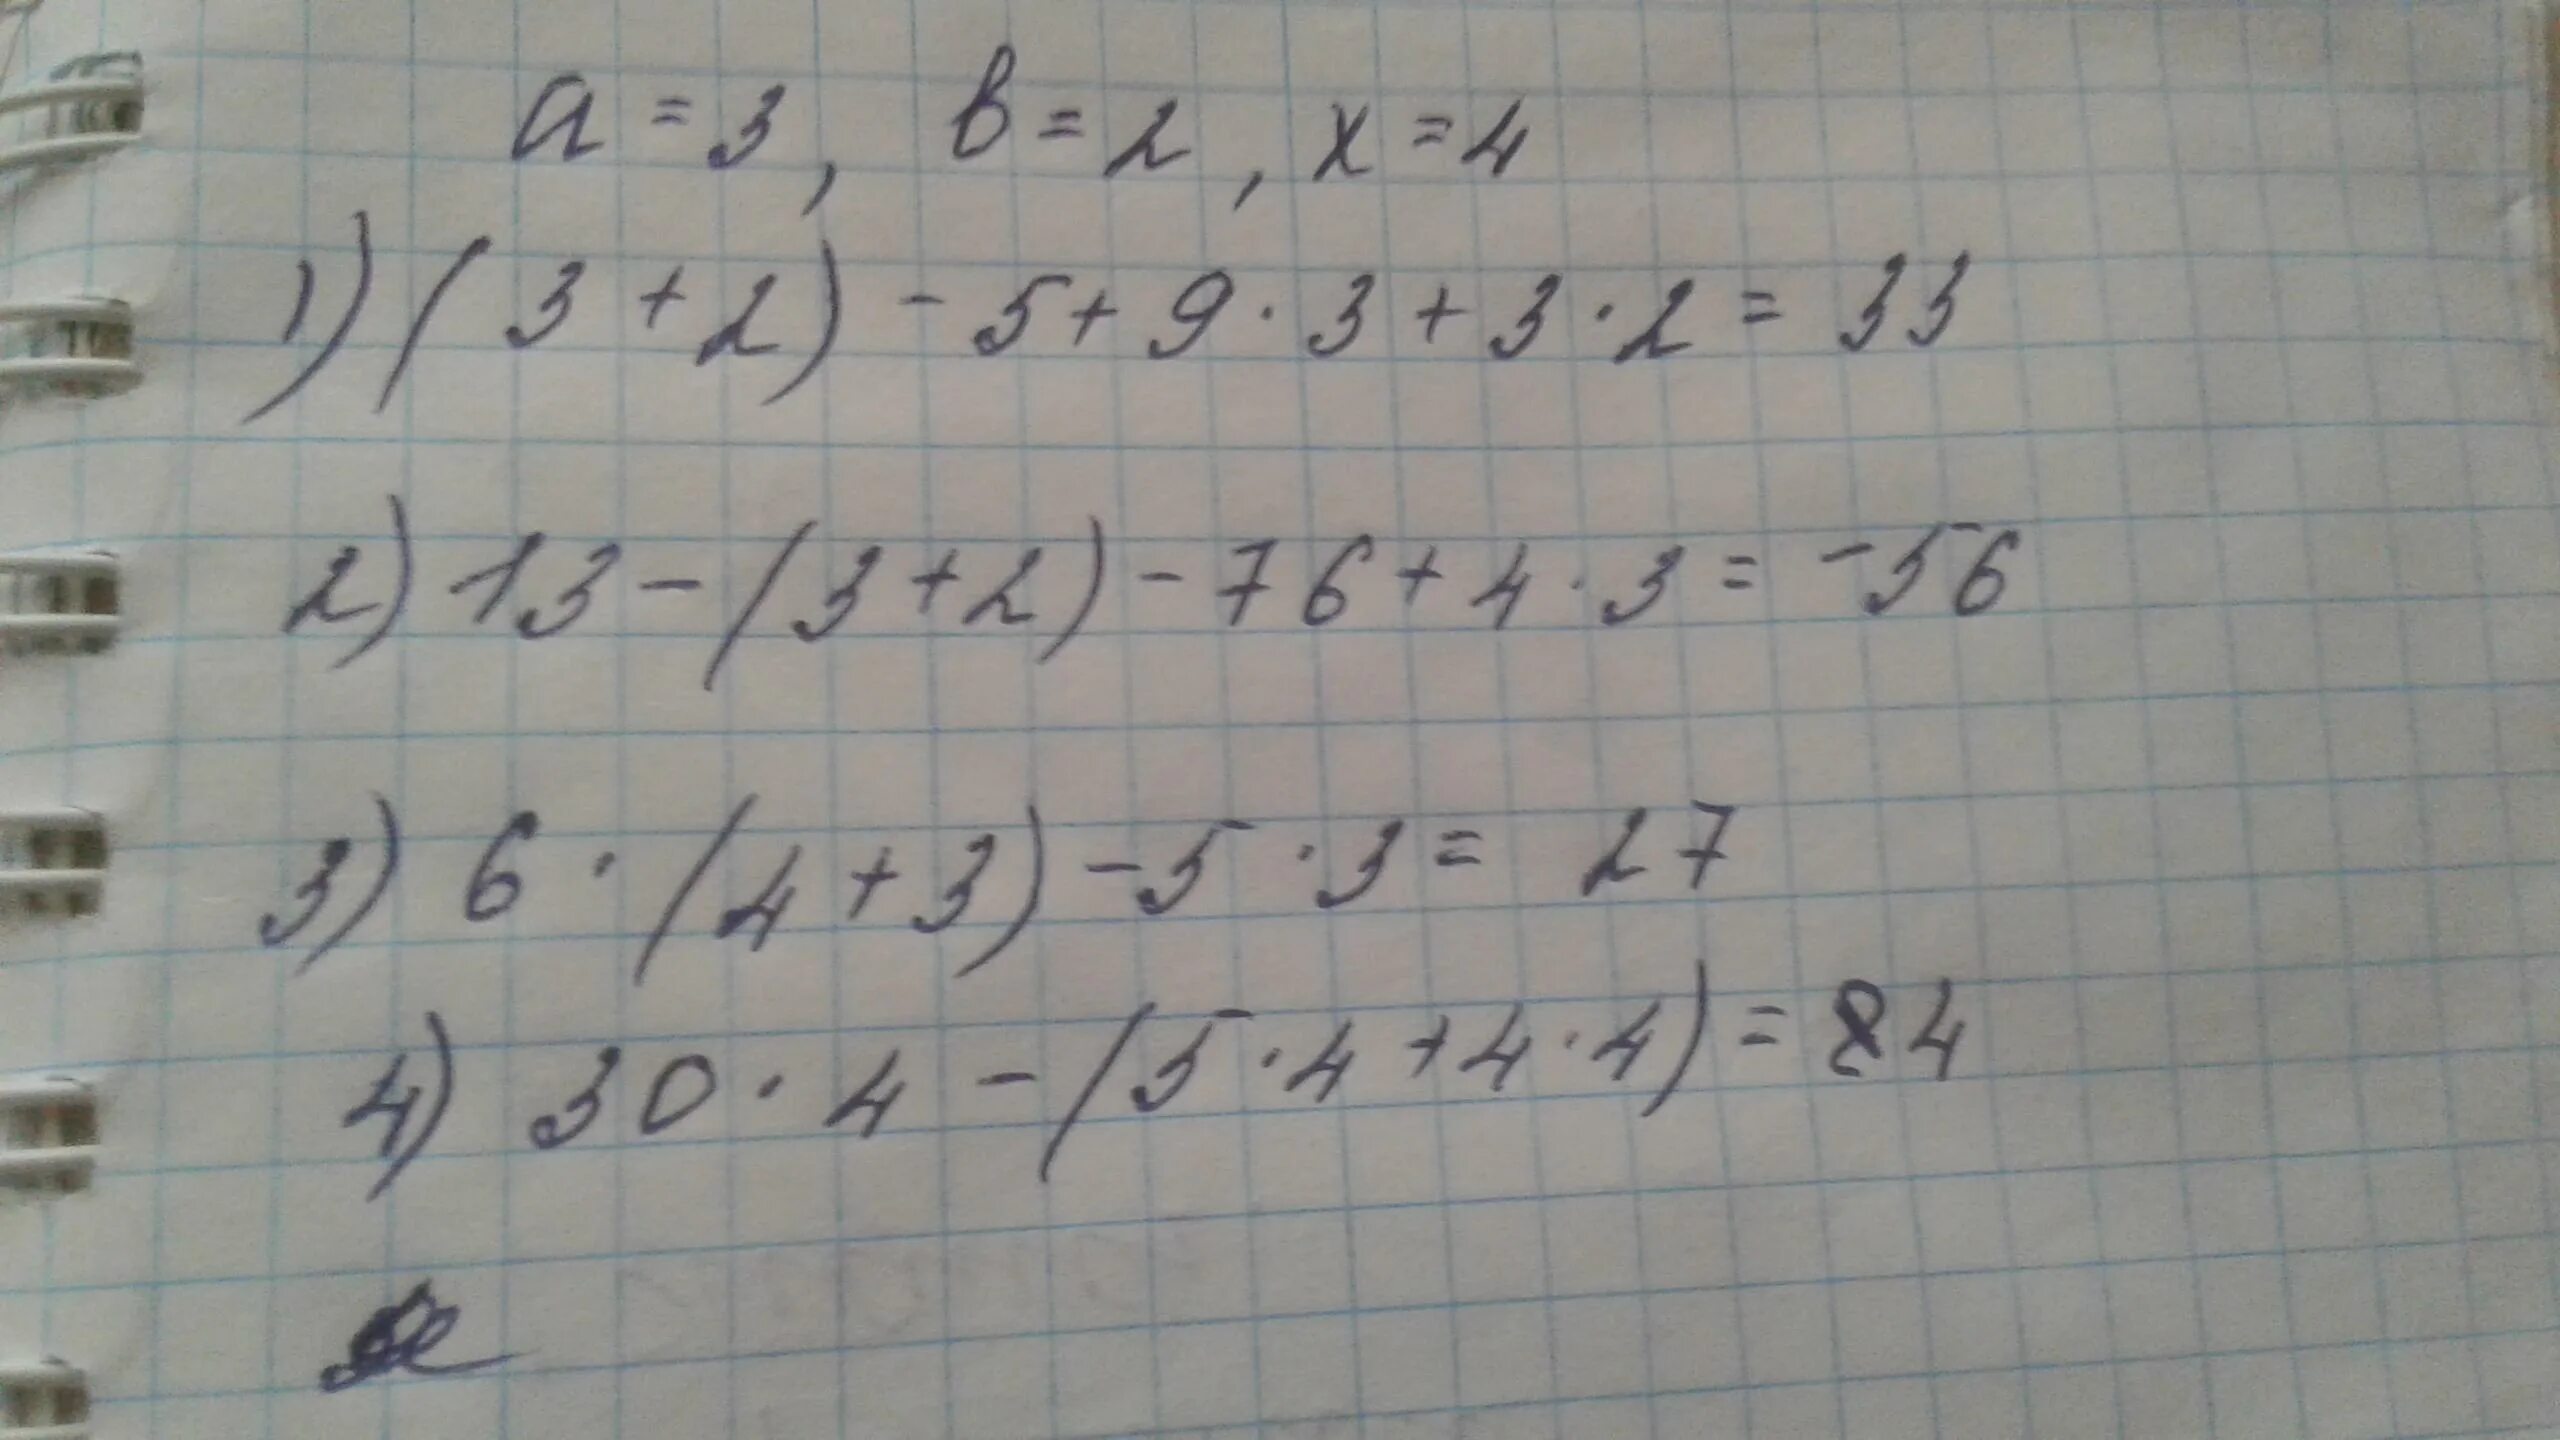 a = 3, в = 2, x = 4
1) (3 + 2) - 5 + 9 · 3 + 3 · 2 = 33
2) 13 - (3 + 2) - 76 + 4 · 3 = -56
3) 6 · (4 + 3) - 5 · 3 = 27
4) 30 · 4 - (5 · 4 + 4 · 4) = 84